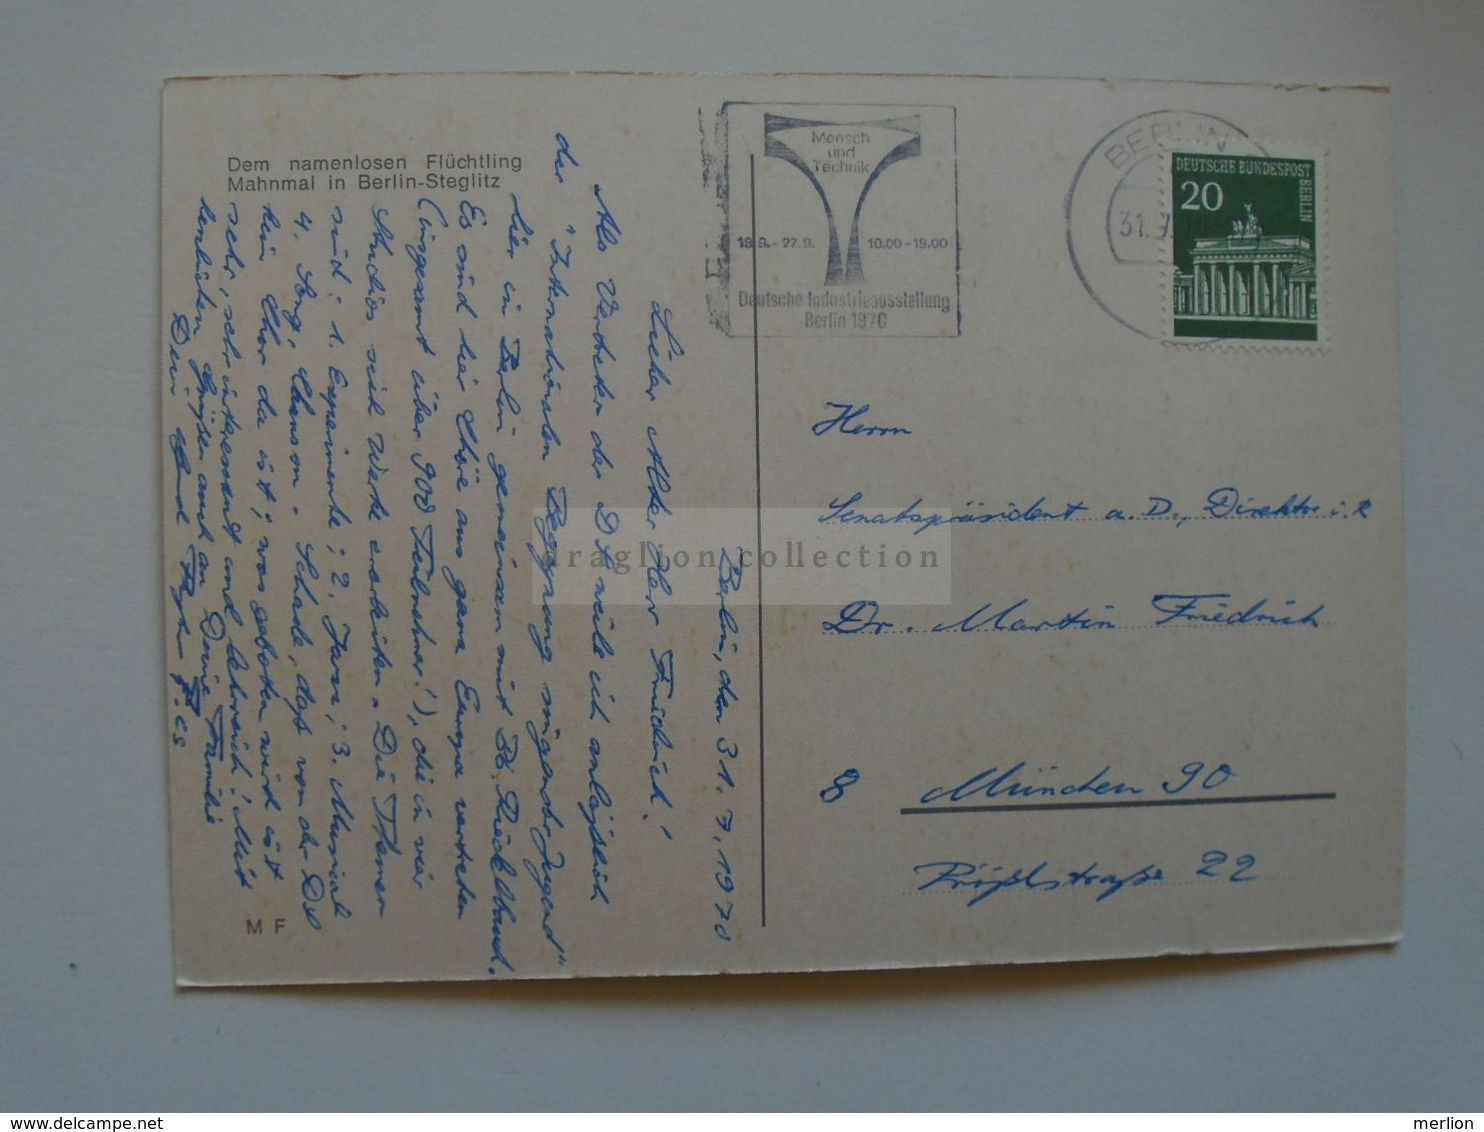 Dem namenlosen Flüchtling
Mahnmal in Berlin-Steglitz
Berlin, den 31.7.1970
Lieber Alter Herr Friedrich!
Als Vertreter der DS weile ich anläßlich
der "Internationalen Begegnung singender Jugend"
hier in Berlin gemeinsam mit
Es sind hier Chöre aus ganz Europa vertreten
(insgesamt über 900 Teilnehmer!), die in vier
Studios sich Werke erarbeiten. Die Themen
sind: 1. Experimente; 2. Jazz; 3. Musical
4. Song, Chanson. Schade, daß von der DS
kein Chor da ist; was geboten wird ist
sehr, sehr interessant und lehrreich! Mit
herzlichen Grüßen auch an Deine Familie
Dein
M F
Mensch
und
Technik
18.9. - 27.9. 10.00 - 19.00
Deutsche Industrieausstellung
Berlin 1970
BERLIN
31. 7.
DEUTSCHE BUNDESPOST
BERLIN
20
Herrn
Senatspräsident a. D., Direktor i. R
Dr. Martin Friedrich
8 München 90
Rüßlstraße 22
raglion collection
delcampe.net
merlion